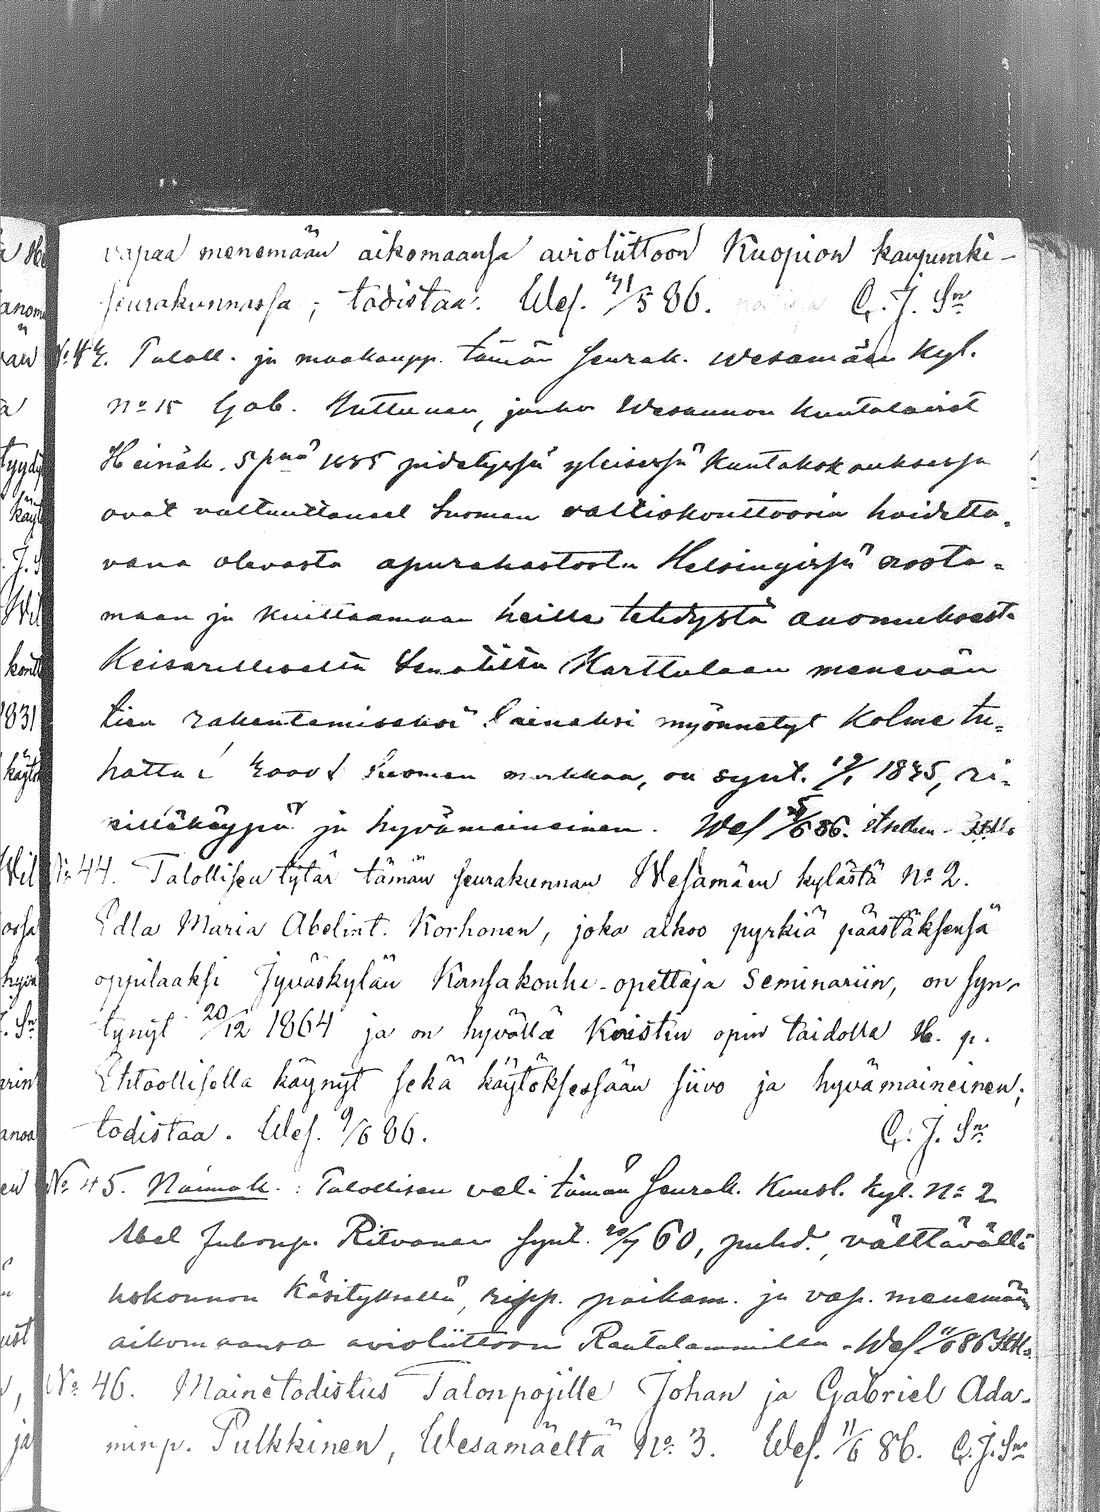 vapaa menemään aikomaansa avioliittoon Kuopion kaupunki-
seurakunnassa; todistaa. Wes. 31/5 86. C. J. Sn
No 43. Taloll. ja maakaupp. tämän seurak. Wesamäen kyl.
No 15 Gab. Huttunen, jonka Wesannon kuntalaiset
Heinäk. 5 pnä 1885 pidetyssä yleisessä kuntakokouksessa
ovat valtuuttaneet Suomen valtiokonttoorin hoidetta-
vana olevasta apurahastosta Helsingissä nosta-
maan ja kuittaamaan heille tehdystä anomuksesta
Keisarilliselta Senatilta Karttulaan menevän
tien rakentamiseksi lainaksi myönnetyt kolme tu-
hatta Suomen markkaa, on synt. 19/1 1845, ri-
pilläkäypä ja hyvämaineinen. Wes 5/6 86.
No 44. Talollisen tytär tämän seurakunnan Wesamäen kylästä No 2.
Edla Maria Abelint. Korhonen, joka aikoo pyrkiä päästäksensä
oppilaaksi Jyväskylän Kansakoulu-opettaja Seminariin, on syn-
tynyt 20/12 1864 ja on hyvällä Kristin opin taidolla H. p.
Ehtoollisella käynyt sekä käytöksessään siivo ja hyvämaineinen;
todistaa. Wes. 9/6 86. C. J. Sn
No 45. Naimak.: Talollisen veli tämän seurak. kyl. No 2
Abel Juhonp. Ritvanen synt. 20/7 60, puhd., välttävällä
kokonnon käsityksellä, ripp. paikam. ja vap. menemään
aikomaansa avioliittoon Rautalammilla. Wes 11/6 86
No 46. Mainetodistus Talonpojille Johan ja Gabriel Ada-
minp. Pulkkinen, Wesamäeltä No 3. Wes. 11/6 86. C. J. Sn